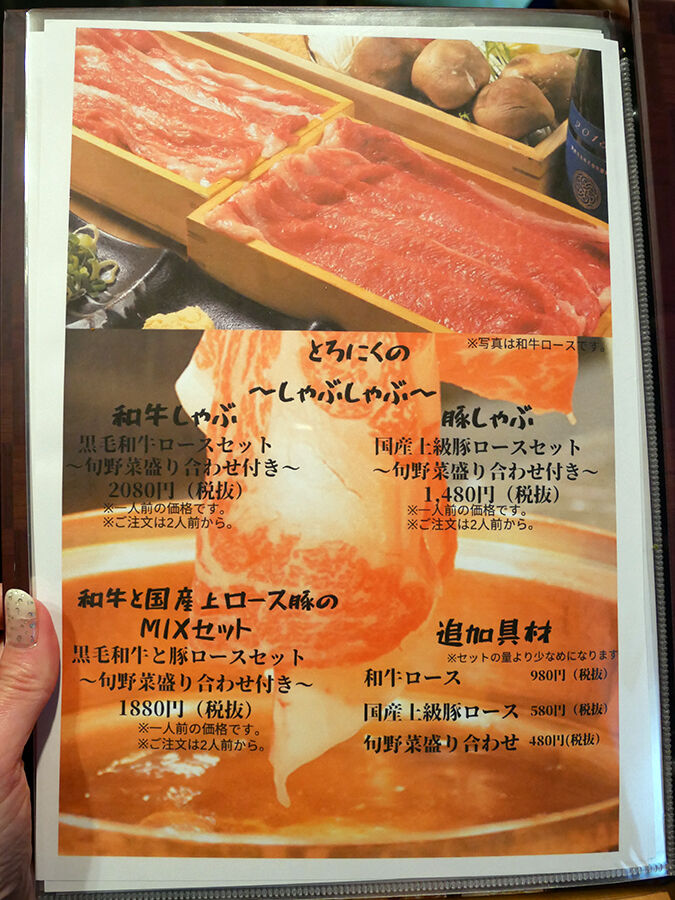 2015
※写真は和牛ロースです。
とろにくの
～しゃぶしゃぶ～
和牛しゃぶ
黒毛和牛ロースセット
～旬野菜盛り合わせ付き～
2080円（税抜）
※一人前の価格です。
※ご注文は2人前から。
豚しゃぶ
国産上級豚ロースセット
～旬野菜盛り合わせ付き～
1,480円（税抜）
※一人前の価格です。
※ご注文は2人前から。
和牛と国産上ロース豚の
MIXセット
黒毛和牛と豚ロースセット
～旬野菜盛り合わせ付き～
1880円（税抜）
※一人前の価格です。
※ご注文は2人前から。
追加具材
※セットの量より少なめになります
和牛ロース 980円（税抜）
国産上級豚ロース 580円（税抜）
旬野菜盛り合わせ 480円(税抜)